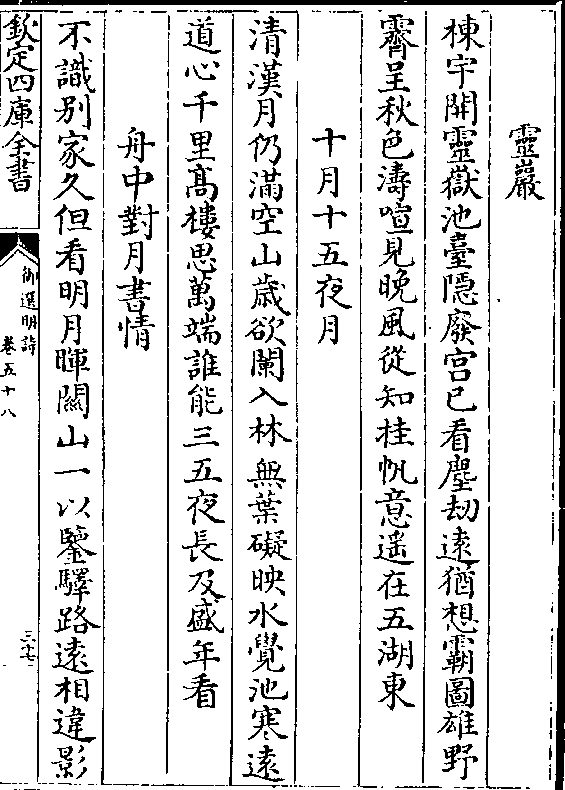 靈巖
棟宇開靈嶽池臺隱廢宫已看塵刼遠猶想霸圖雄野
霽呈秋色濤喧見晚風從知桂帆意遥在五湖東
十月十五夜月
清漢月仍滿空山歲欲闌入林無葉礙映水覺池寒遠
道心千里髙樓思萬端誰能三五夜長及盛年看
舟中對月書情
不識别家久但看明月暉關山一以鑒驛路遠相違影
欽定四庫全書
御選明詩
卷五十八
三十七